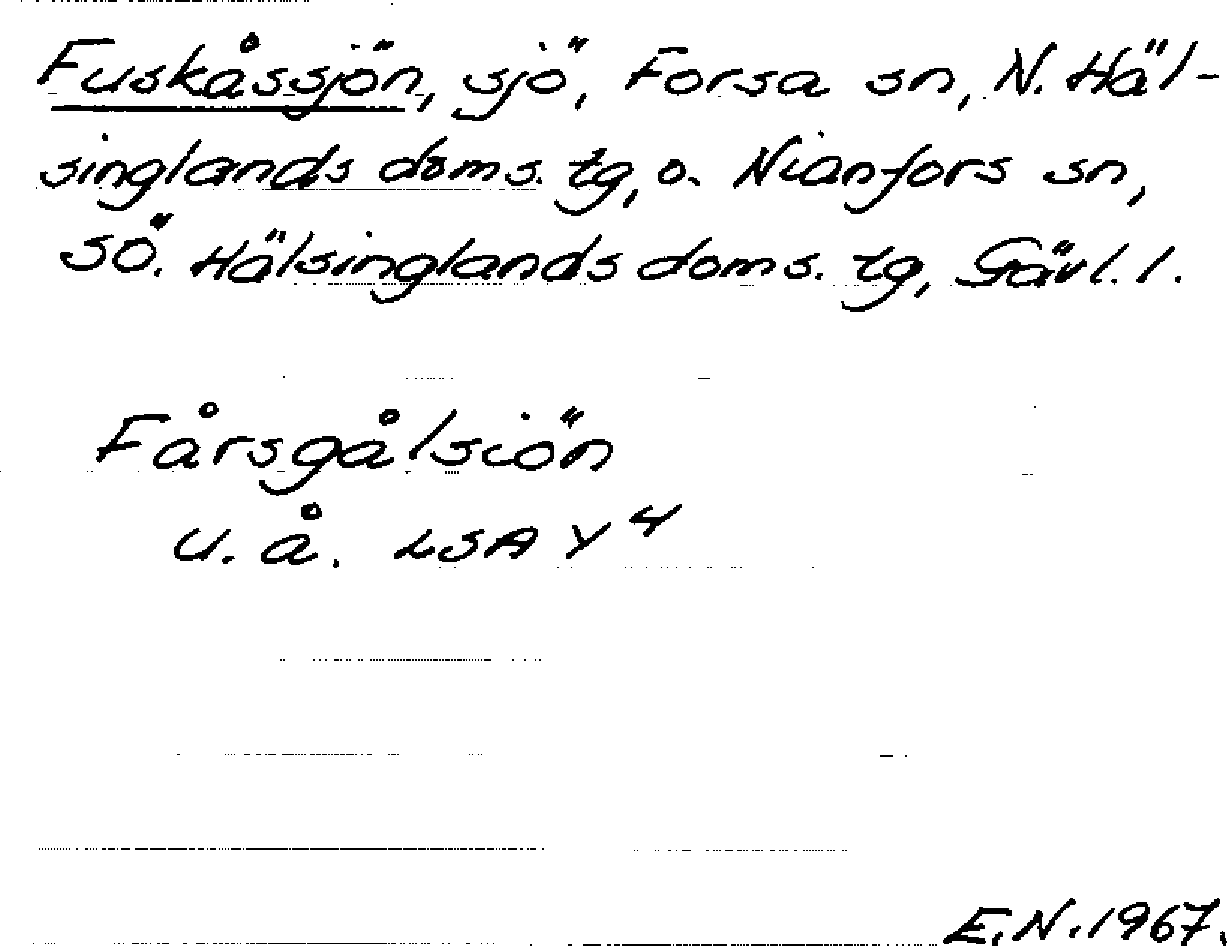 Fuskåssjön, sjö, Forsa sn, N. Häl-
singlands doms. tg, o. Nianfors sn,
SÖ. Hälsinglands doms. tg, Gävl. l.
Fårsgålsiön
U. å. LSA Y 4
E.N. 1967.